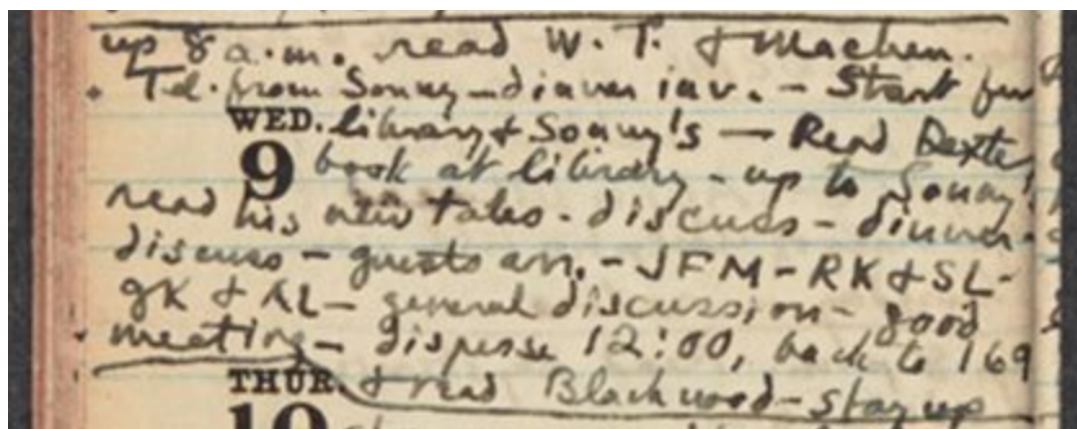 up 8 a.m. read W. T. & Machen.
Tel. from Sonny – dinner inv. – Start for
WED. library & Sonny's — Read Dexter
9 book at library – up to Sonny's
read his new tales – discuss – dinner –
discuss – guests arr. – JFM – RK & SL –
GK & AL – general discussion – good
meeting – disperse 12:00, back to 169
THUR. & read Blackwood – stay up
10